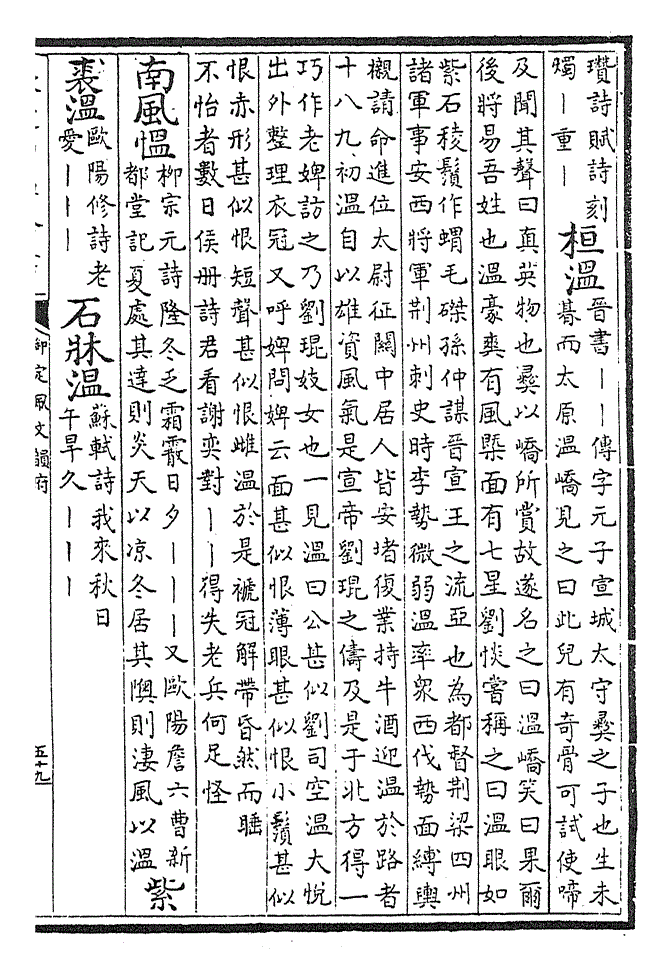 瓚詩賦詩刻
燭丨重丨
桓溫
晉書丨丨傳字元子宣城太守彝之子也生未
朞而太原溫嶠見之曰此兒有奇骨可試使啼
及聞其聲曰真英物也彝以嶠所賞故遂名之曰溫嶠笑曰果爾
後將易吾姓也溫豪爽有風槩面有七星劉惔嘗稱之曰溫眼如
紫石稜鬚作蝟毛磔孫仲謀晉宣王之流亞也為都督荆梁四州
諸軍事安西將軍荆州刺史時李勢微弱溫率衆西伐勢面縛輿
櫬請命進位太尉征關中居人皆安堵復業持牛酒迎溫於路者
十八九初溫自以雄資風氣是宣帝劉琨之儔及是于北方得一
巧作老婢訪之乃劉琨妓女也一見溫曰公甚似劉司空溫大悅
出外整理衣冠又呼婢問婢云面甚似恨薄眼甚似恨小鬚甚似
恨赤形甚似恨短聲甚似恨雌溫於是褫冠解帶昏然而睡
不怡者數日侯册詩君看謝奕對丨丨得失老兵何足怪
南風溫
柳宗元詩隆冬乏霜霰日夕丨丨丨又歐陽詹六曹新
都堂記夏處其達則炎天以凉冬居其隩則淒風以溫
紫
裘溫
歐陽修詩老
愛丨丨丨
石牀溫
蘇軾詩我來秋日
午旱久丨丨丨
御定佩文韻府
五十九